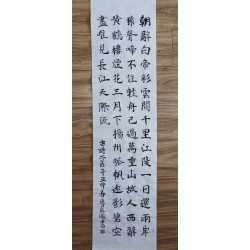 朝辭白帝彩雲間千里江陵一日還兩岸
猿聲啼不住輕舟已過萬重山故人西辭
黃鶴樓煙花三月下揚州孤帆遠影碧空
盡唯見長江天際流
古詩二首